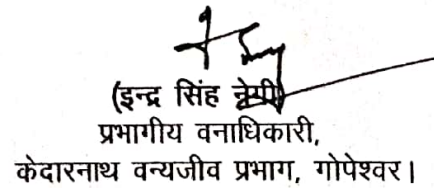 (इन्द्र सिंह नेगी)
प्रभागीय वनाधिकारी,
केदारनाथ वन्यजीव प्रभाग, गोपेश्वर।